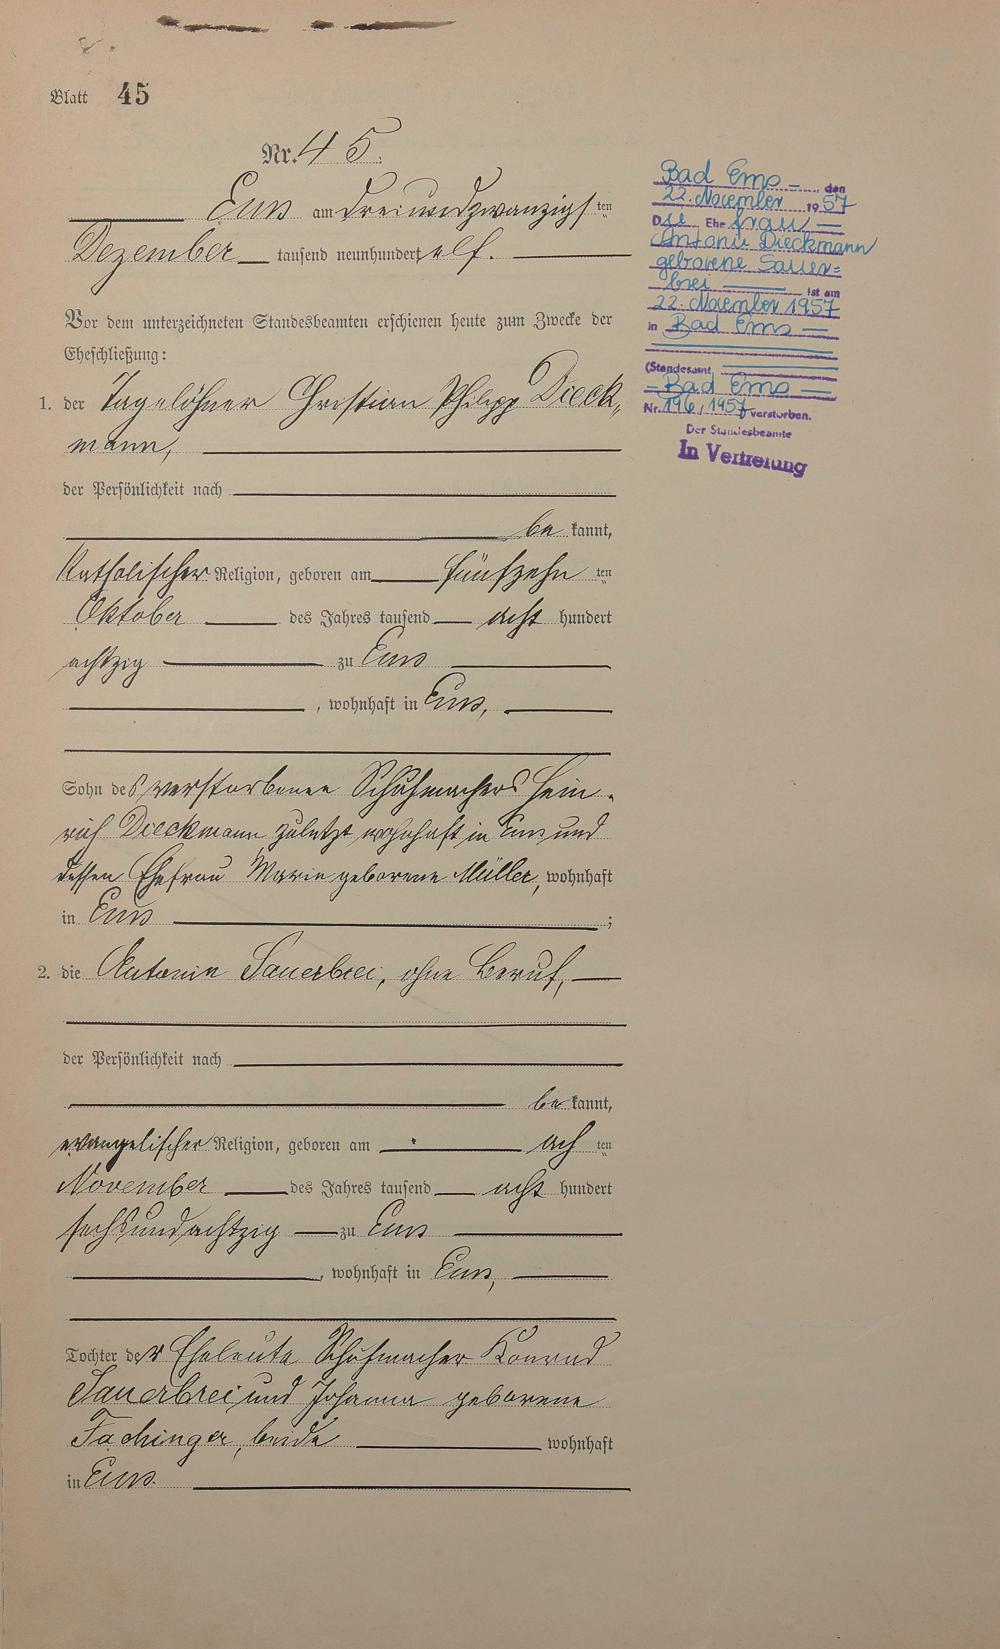 Blatt 45
Nr. 45.
Ems am dreiundzwanzigsten
Dezember tausend neunhundert elf.
Vor dem unterzeichneten Standesbeamten erschienen heute zum Zwecke der
Eheschließung:
1. der Tagelöhner Christian Philipp Dieck-
mann,
der Persönlichkeit nach
bekannt,
katholischer Religion, geboren am fünfzehnten
Oktober des Jahres tausend acht hundert
achtzig zu Ems
, wohnhaft in Ems,
Sohn des verstorbenen Schuhmachers Hein-
rich Dieckmann zuletzt wohnhaft in Ems und
dessen Ehefrau Marie geborene Müller, wohnhaft
in Ems ;
2. die Antonie Sauerbrei, ohne Beruf,
der Persönlichkeit nach
bekannt,
evangelischer Religion, geboren am achten
November des Jahres tausend acht hundert
sechsundachtzig zu Ems
, wohnhaft in Ems,
Tochter der Eheleute Schuhmacher Konrad
Sauerbrei und Johanna geborene
Fachinger, beide wohnhaft
in Ems.
Bad Ems, den
22. November 1957
Die Ehefrau
Antonie Dieckmann
geborene Sauer=
brei ist am
22. November 1957
in Bad Ems
(Standesamt
Bad Ems
Nr. 196, 1957 verstorben.
Der Standesbeamte
In Vertretung